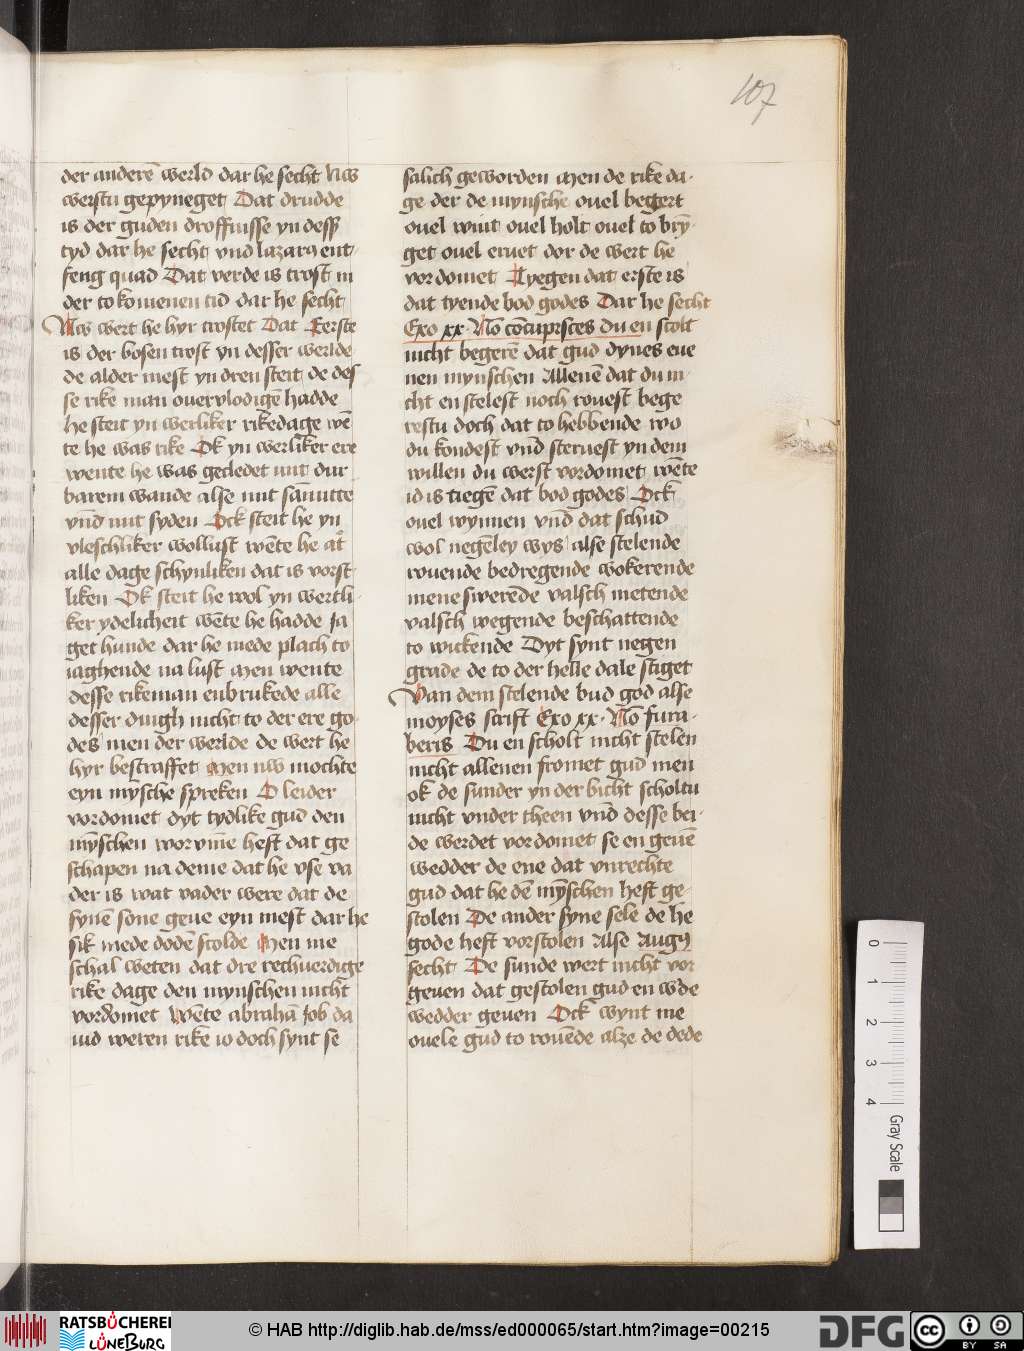 107
der anderē werld dar he secht Nw
werstu gepyneget Dat drudde
is der guden droffnisse yn desß
tyd dar he secht vnd lazarꝯ ent-
feng quad Dat verde is trost in
der to komenen tid dar he secht
Nw wert he hyr trostet Dat Eerste
is der bosen trost yn desser werlde
de alder mest yn dren steit de des
se rike man ouervlodigē hadde
He steit yn werliker rikedage wē
te he was rike Ok yn werliker ere
wente he was gecledet mit dur
barem wande alse mit sāmitte
vn̄d mit syden Ock steit he yn
vleschliker wollust wēte he at
alle dage schynliken dat is vorst-
liken Ok steit he wol yn wertli-
ker ydelicheit wēte he hadde ja
get hunde dar he mede plach to
iaghende na lust Men wente
desse rikeman enbrukede alle
desser dingh nicht to der ere go-
des men der werlde de wert he
hyr bestraffet Men nw mochte
eyn mȳsche spreken O leider
vordomet dyt tydlike gud den
mȳschen worvm̄e heft dat ge
schapen na deme dat he vse va
der is wat vader were dat de
synē sone geue eyn mest dar he
sik mede dodē scolde Men me
schal weten dat dre rechuerdige
rike dage den mynschen nicht
vordomet Wēte abrahā Job da
uid weren rike io doch synt se
salich geworden Men de rike da-
ge der de mynsche ouel begert
ouel wint ouel holt ouel to brȳ-
get ouel eruet dor de wert he
vordomet Tyegen dat erste is
dat tyende bod godes Dar he secht
Exo xx. No cōcupisces du en scolt
nicht begerē dat gud dynes eue
nen mynschen Allenē dat du ni-
cht en stelest noch rouest bege
restu doch dat to hebbende wo
du kondest vn̄d steruest yn dem
willen du werst vordomet wēte
id is tiegē dat bod godes Ock
ouel wynnen vn̄d dat schud
wol negēley wys alse stelende
rouende bedregende wokerende
mene swerēde valsch metende
valsch wegende beschattende
to wickende Dyt synt negen
grade de to der helle dale stiget
Van dem stelende bud god alse
moyses scrift Exo xx. No fura-
beris Du en scholt nicht stelen
nicht allenen fromet gud men
ok de sunder yn der bicht scholtu
nicht vnder theen vn̄d desse bei-
de werdet vordomet se en geuē
wedder de ene dat vnrechte
gud dat he dē mȳschen heft ge-
stolen De ander syne sele de he
gode heft vorstolen Alse Augꝯ
secht De sunde wert nicht vor
geuen dat gestolen gud en w̄de
wedder geuen Ock wynt me
ouele gud to rouēde alze de dede
0 1 2 3 4
Gray Scale
RATSBÜCHEREI
LÜNEBURG
© HAB http://diglib.hab.de/mss/ed000065/start.htm?image=00215
DFG
cc BY SA